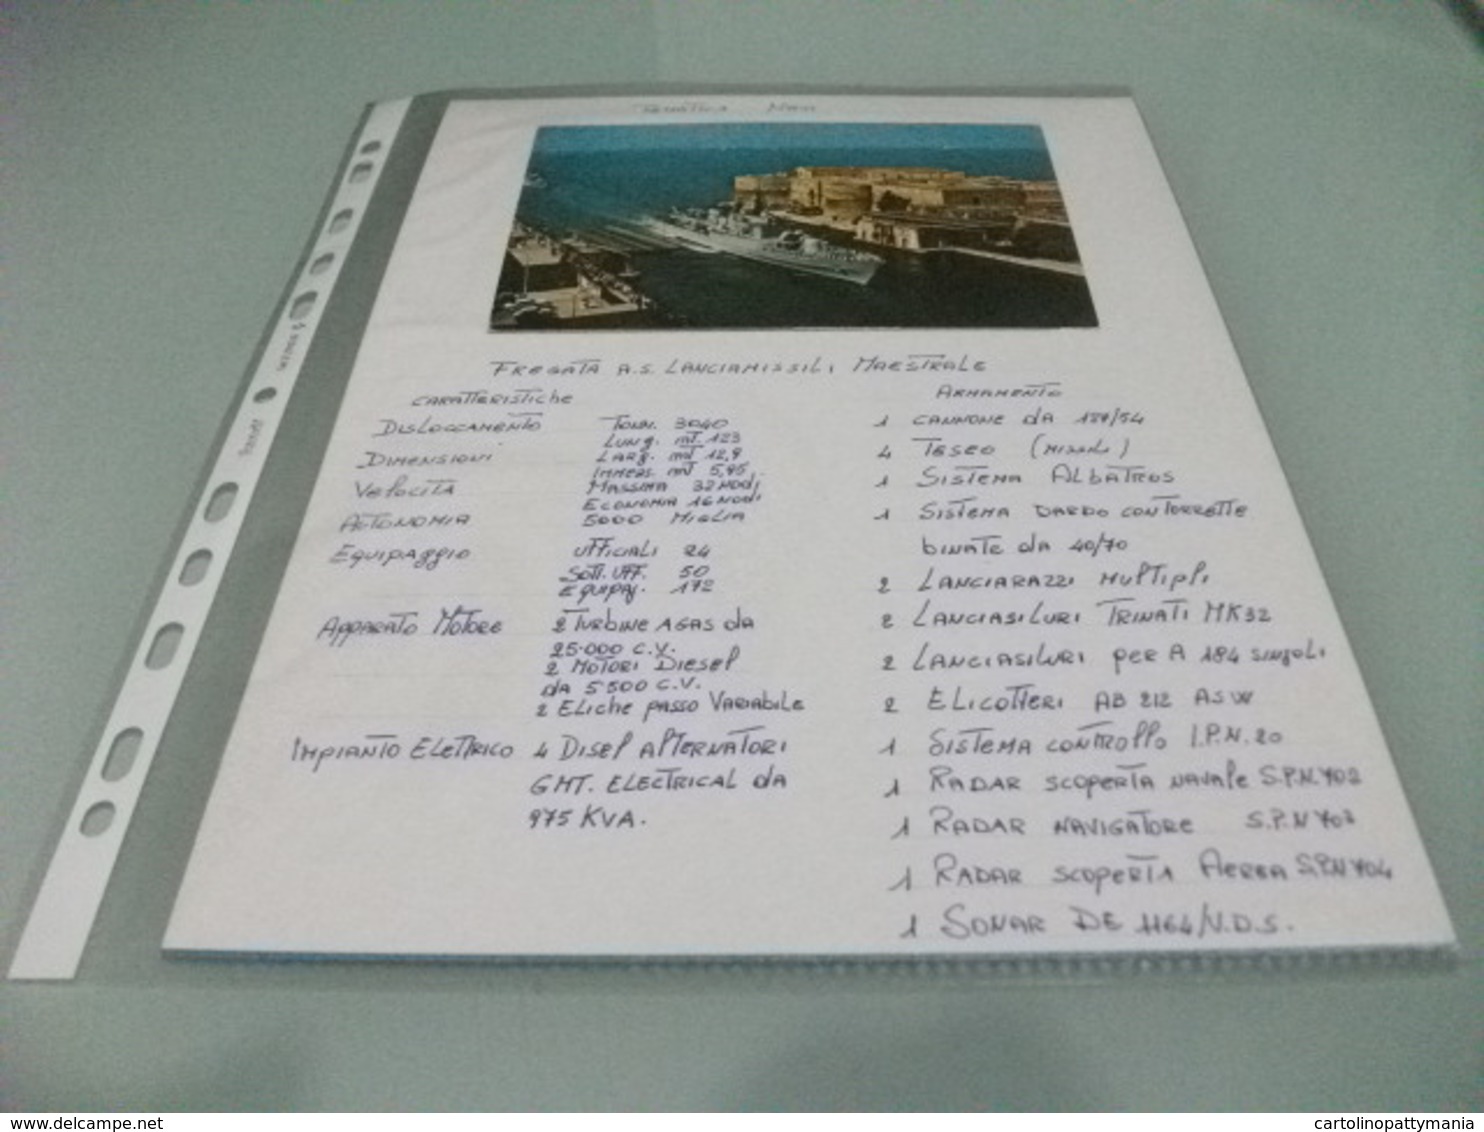 TEMATICA NAVI
FREGATA A.S. LANCIAMISSILI MAESTRALE
CARATTERISTICHE
DISLOCCAMENTO TONN. 3040
DIMENSIONI LUNG. mt. 123
LARG. mt 12,9
IMMERS. mt 5,95
VELOCITÀ MASSIMA 32 NODI
ECONOMIA 16 NODI
AUTONOMIA 5000 MIGLIA
EQUIPAGGIO UFFICIALI 24
SOTT. UFF. 50
EQUIPAG. 172
APPARATO MOTORE 2 TURBINE A GAS DA
25.000 C.V.
2 MOTORI DIESEL
DA 5500 C.V.
2 ELICHE PASSO VARIABILE
IMPIANTO ELETTRICO 4 DISEL ALTERNATORI
GMT. ELECTRICAL DA
975 KVA.
ARMAMENTO
1 CANNONE DA 127/54
4 TESEO (MISSILI)
1 SISTEMA ALBATROS
1 SISTEMA DARDO CON TORRETTE
BINATE DA 40/70
2 LANCIARAZZI MULTIPLI
2 LANCIASILURI TRINATI MK32
2 LANCIASILURI PER A 184 SINGOLI
2 ELICOTTERI AB 212 ASW
1 SISTEMA CONTROLLO I.P.N. 20
1 RADAR SCOPERTA NAVALE S.P.N. 702
1 RADAR NAVIGATORE S.P.N 703
1 RADAR SCOPERTA AEREA S.P.N 704
1 SONAR DE 1164/V.D.S.
www.delcampe.net
cartolinopattymania